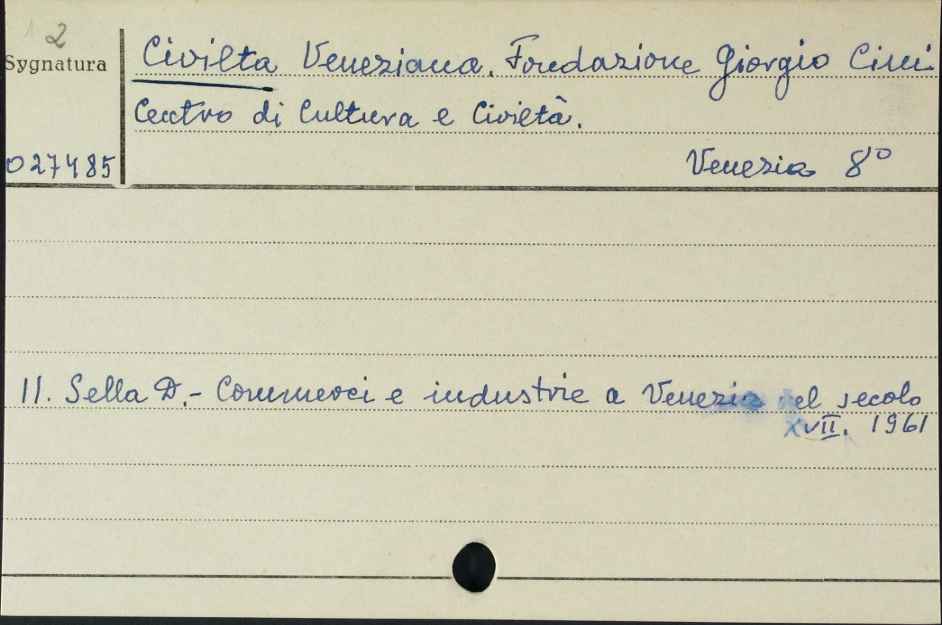 2
Sygnatura
Civilta Veneziana. Fondazione Giorgio Cini.
Centro di Cultura e Civiltà.
027485
Venezia 8°
11. Sella D.- Commerci e industrie a Venezia nel secolo
XVII. 1961